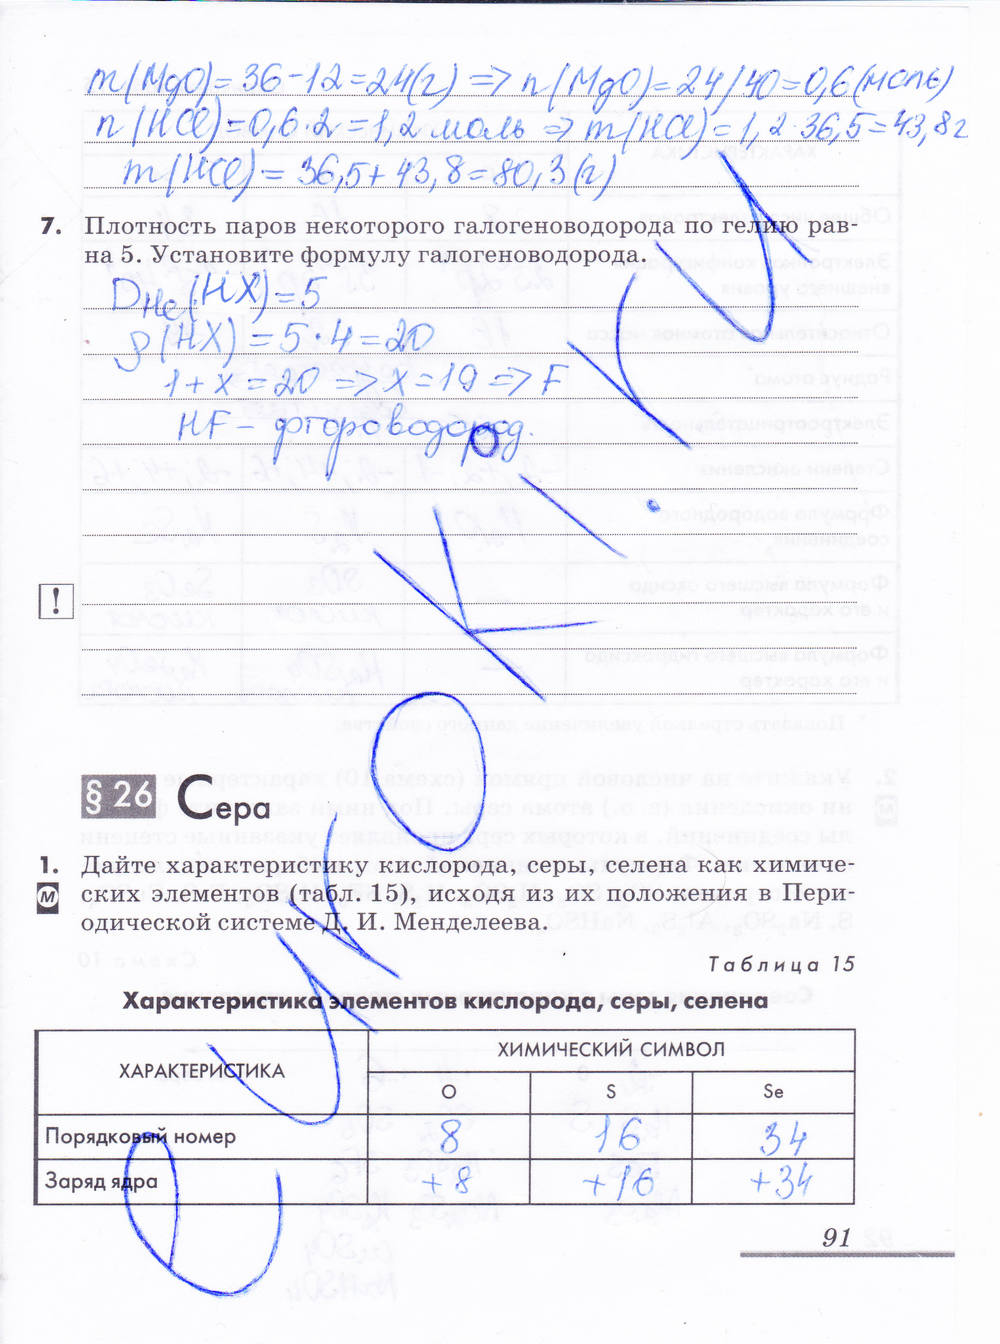 m(MgO)=36-12=24(г) => n(MgO)=24/40=0,6(моль)
n(HCl)=0,6·2=1,2 моль => m(HCl)=1,2·36,5=43,8г
m(HCl)= 36,5+43,8=80,3(г)
7. Плотность паров некоторого галогеноводорода по гелию рав-
на 5. Установите формулу галогеноводорода.
DHe(HX)=5
ρ(HX)=5·4=20
1+x=20 => x=19 => F
HF – фтороводород.
!
§ 26 Сера
1. Дайте характеристику кислорода, серы, селена как химиче-
М ских элементов (табл. 15), исходя из их положения в Пери-
одической системе Д. И. Менделеева.
Таблица 15
Характеристика элементов кислорода, серы, селена
ХАРАКТЕРИСТИКА ХИМИЧЕСКИЙ СИМВОЛ
O S Se
Порядковый номер 8 16 34
Заряд ядра +8 +16 +34
91